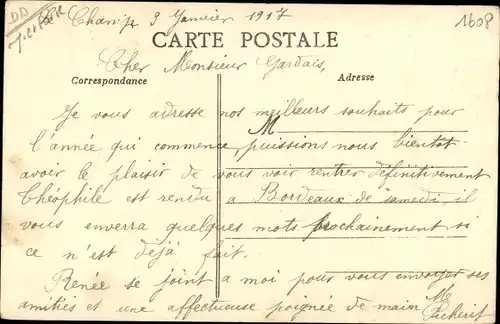 Le Champ 9 Janvier 1917
1608
DD
CARTE POSTALE
Cher Monsieur Gardais,
Correspondance
Adresse
Je vous adresse nos meilleurs souhaits pour
M
l'année qui commence, puissions nous bientôt
avoir le plaisir de vous voir rentrer définitivement
Théophile est rendu a Bordeaux de samedi, il
vous enverra quelques mots prochainement si
ce n'est déjà fait.
Renée se joint a moi pour vous envoyer ses
amitiés et une affectueuse poignée de main M
Picherit